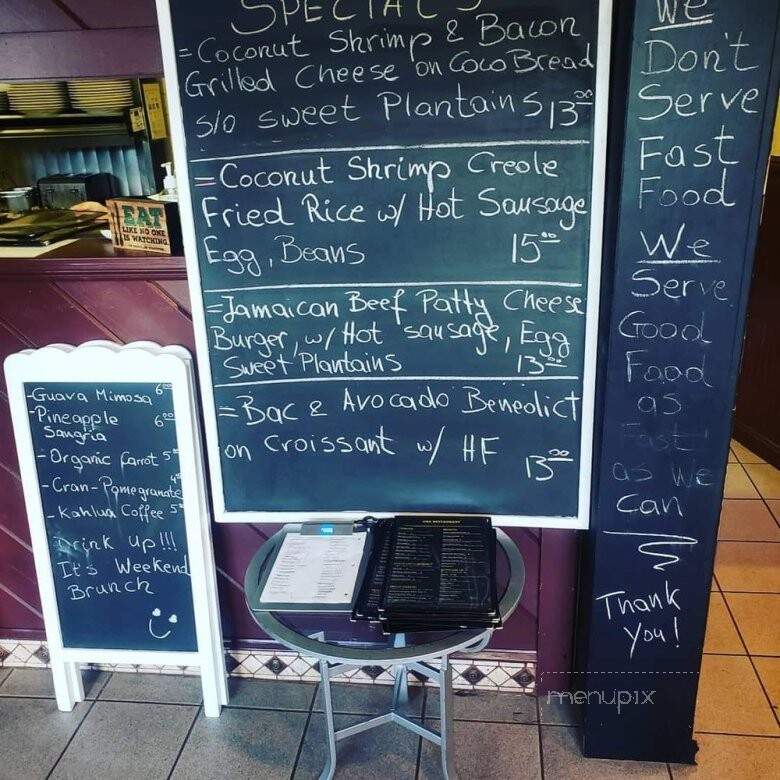 SPECIALS
=Coconut Shrimp & Bacon
Grilled Cheese on Coco Bread
s/o sweet Plantains 13.00
=Coconut Shrimp Creole
Fried Rice w/ Hot Sausage
Egg, Beans 15.00
=Jamaican Beef Patty Cheese
Burger, w/ Hot sausage, Egg
Sweet Plantains 13.00
=Bac & Avocado Benedict
on Croissant w/ HF 13.00
We
Don't
Serve
Fast
Food
We
Serve
Good
Food
as
Fast
as We
Can
Thank
you!
EAT
LIKE NO ONE
IS WATCHING
-Guava Mimosa 6.00
-Pineapple 6.00
Sangria
-Organic Carrot 5
-Cran-Pomegranate 4
-Kahlua Coffee 5
Drink up!!!
It's Weekend
Brunch
menupix